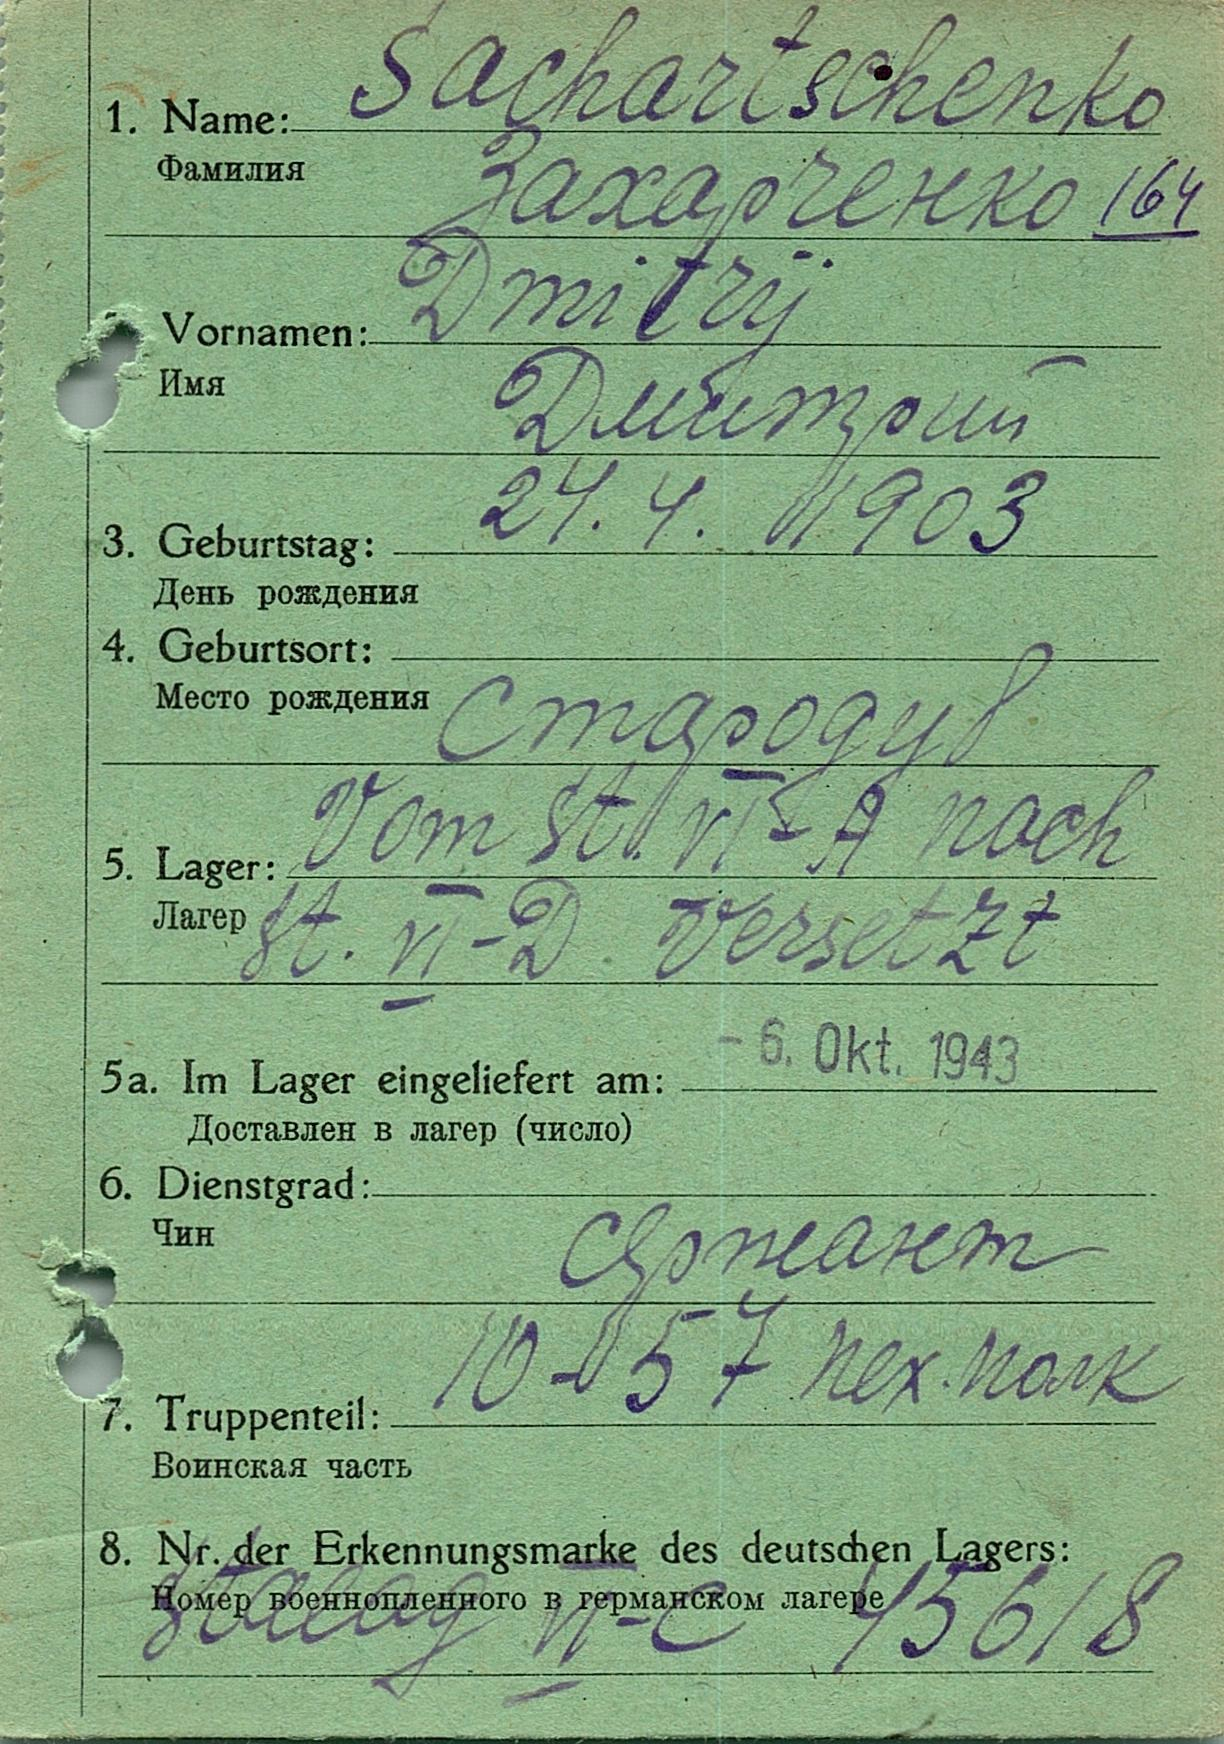 Sachartschenko
1. Name:
Фамилия
Захарченко 164
Dmitrij
Vornamen:
Имя
Дмитрий
24. 4. 1903
3. Geburtstag:
День рождения
4. Geburtsort:
Место рождения Стародуб
Vom St. VI-A nach
5. Lager:
Лагер St. VI-D. Versetzt
- 6. Okt. 1943
5a. Im Lager eingeliefert am:
Доставлен в лагер (число)
6. Dienstgrad:
Чин сержант
10-57 пех. полк
7. Truppenteil:
Воинская часть
8. Nr. der Erkennungsmarke des deutschen Lagers:
Номер военнопленного в германском лагере
Stalag VI-C 45618